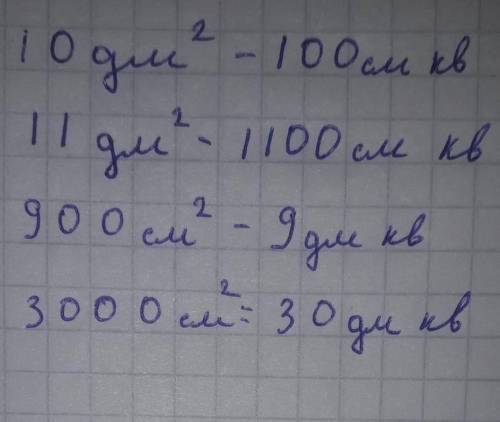 10 дм² - 100 см кв
11 дм² - 1100 см кв
900 см² - 9 дм кв
3000 см² = 30 дм кв